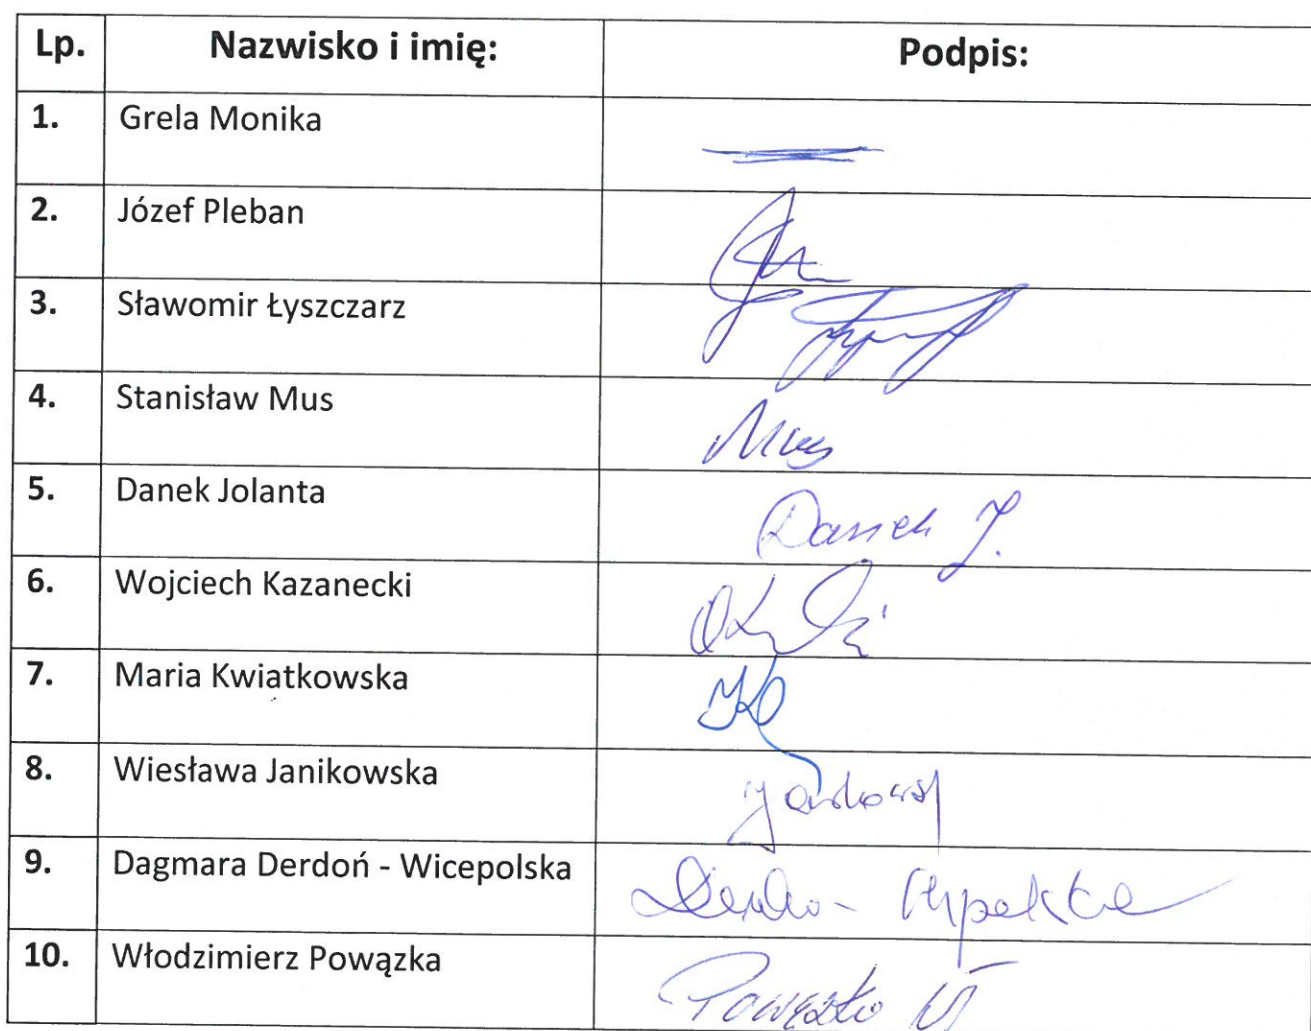 Lp. Nazwisko i imię: Podpis:
1. Grela Monika
2. Józef Pleban
3. Sławomir Łyszczarz
4. Stanisław Mus Mus
5. Danek Jolanta Danek J.
6. Wojciech Kazanecki
7. Maria Kwiatkowska
8. Wiesława Janikowska
9. Dagmara Derdoń - Wicepolska
10. Włodzimierz Powązka Powązka W